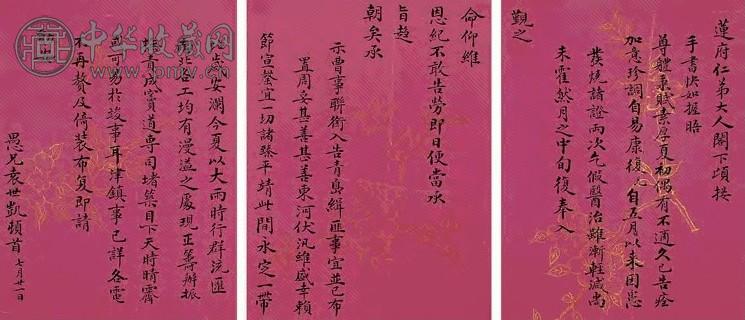 蓮府仁弟大人閣下頃接
手書快如握晤
尊體稟賦素厚夏初偶有不適久已告痊
加意珍調自易康復兄自五月以來因患
發燒諸證兩次乞假醫治雖漸輕減尚
未霍然月之中旬復奉入
覲之
命仰維
恩紀不敢告勞即日便當承
旨趨
朝矣承
示曹事聯銜入告青島緝匪事宜並已布
置周妥甚善甚善東河伏汛維盛幸賴
節宣縈宜一切諸臻平靖此間永定一帶
安瀾今夏以大雨時行群流匯
工均有漫溢之處現正籌辦振
責成實道專司堵築目下天時晴霽
或可易於竣事耳津鎮事已詳各電
不再贅及倚裝布复即請
愚兄袁世凱頓首 七月廿一日
中华收藏网
www.sc001.com.cn